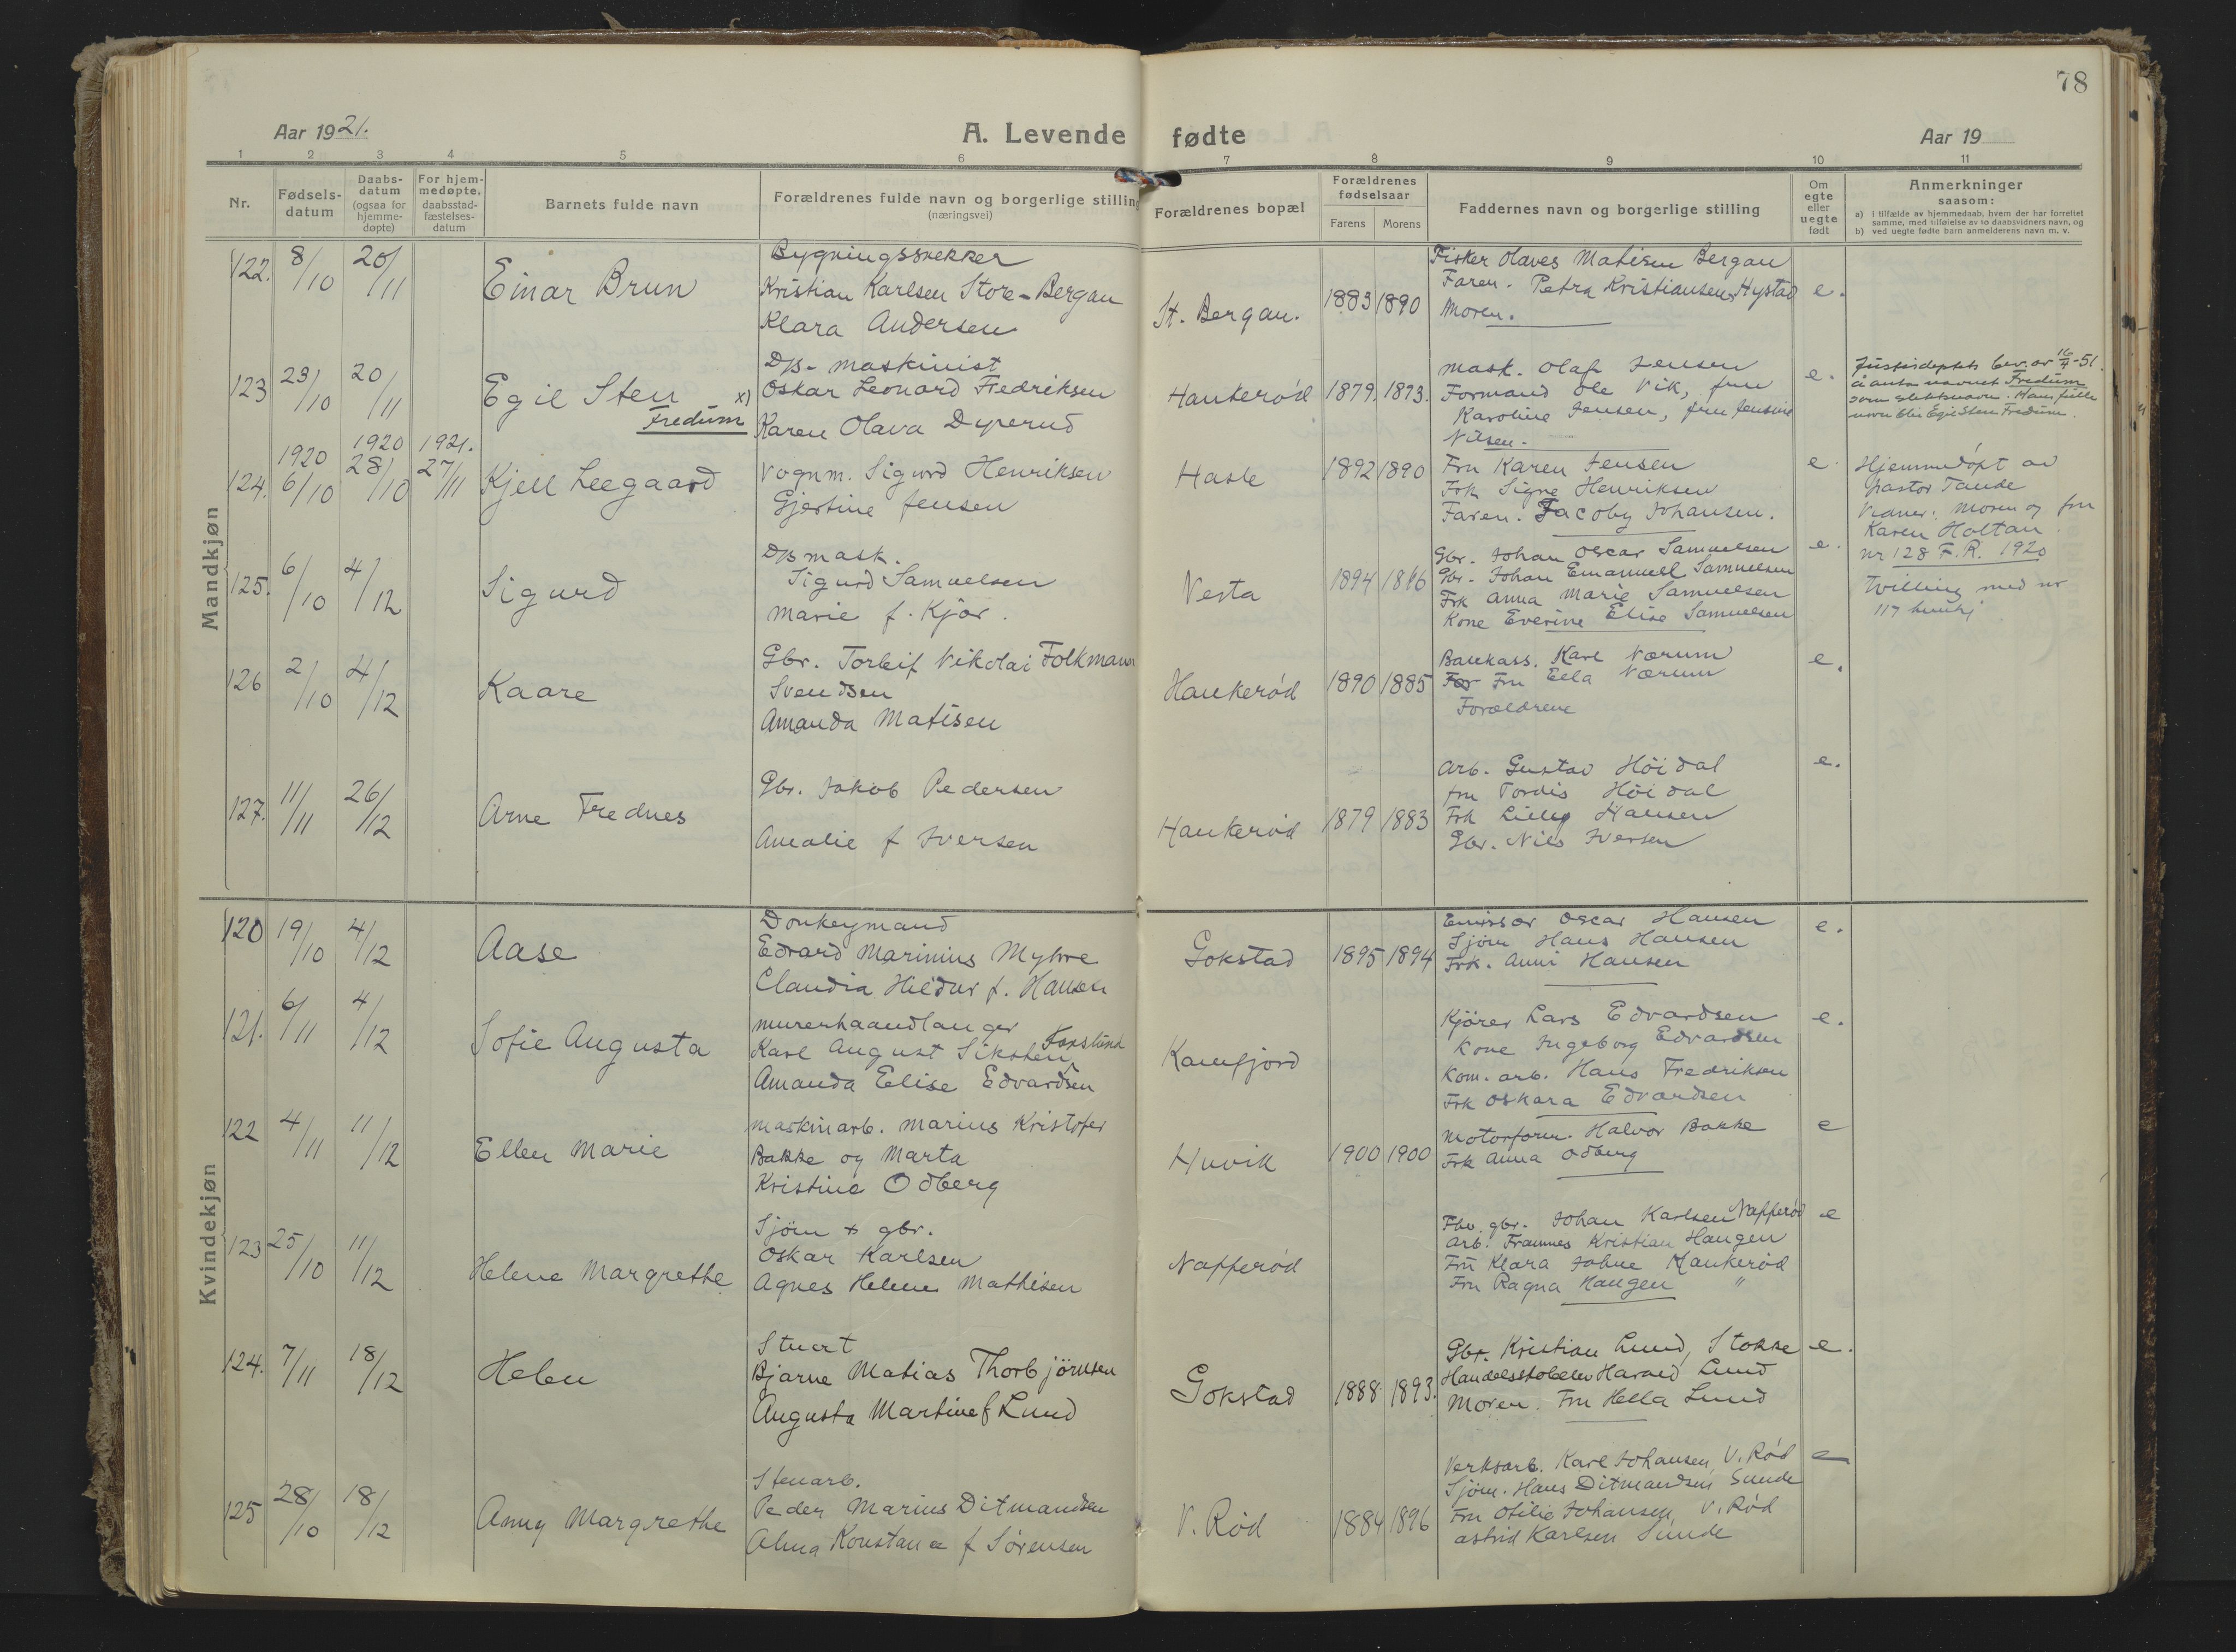 78
Aar 1921.
A. Levende fødte
Aar 19
1 2 3 4 5 6 7 8 9 10 11
Nr.
Fødsels-
datum
Daabs-
datum
(ogsaa for
hjemme-
døpte)
For hjem-
medøpte,
daabsstad-
fæstelses-
datum
Barnets fulde navn
Forældrenes fulde navn og borgerlige stilling
(næringsvei)
Forældrenes bopæl
Forældrenes
fødselsaar
Farens Morens
Faddernes navn og borgerlige stilling
Om
egte
eller
uegte
født
Anmerkninger
saasom:
a) i tilfælde av hjemmedaab, hvem der har forrettet
samme, med tilføielse av to daabsvidners navn, og
b) ved uegte fødte barn anmelderens navn m. v.
Mandkjøn
122. 8/10 20/11
Einar Brun
Bygningssnekker
Kristian Karlsen Store-Bergan
Klara Andersen
St. Bergan. 1883 1890
Fisker Olaves Matisen Bergan
Faren. Petra Kristiansen Hystad
Moren.
e.
123 23/10 20/11
Egil Sten x)
Fredum
D/S- maskinist
Oskar Leonard Fredriksen
Karen Olava Dyperud
Haukerød 1879. 1893.
Mask. Olaf Jensen
Formand Ole Vik, fru
Karoline Jensen, fru Jensine
Nilsen.
e.
Justisdeptets bev. av 16/7-51.
å anta navnet Fredum
som slektsnavn. Hans fulle
navn blir Egil Sten Fredum.
124. 1920 6/10 1920 28/10 1921. 27/11
Kjell Leegaard
Vognm. Sigurd Henriksen
Gjertine Jensen
Hasle 1892 1890
Fru Karen Jensen
Frk Signe Henriksen
Faren. Jacoby Johansen.
e.
Hjemmedøpt av
pastor Tande
Vidner: Moren og fru
Karen Holtan.
nr 128 F.R. 1920
125. 6/10 4/12
Sigurd
D/S mask.
Sigurd Samuelsen
Marie f. Kjær.
Vesta 1894 1896
Gbr. Johan Oscar Samuelsen
Gbr. Johan Emanuel Samuelsen
Frk Anna Marie Samuelsen
Kone Everine Elise Samuelsen
e.
Tvilling med nr
117
126 2/10 4/12
Kaare
Gbr. Torleif Nikolai Folkmann
Svendsen
Amanda Matisen
Haukerød 1890 1885
Bankkass. Karl Nærum
Fru Ella Nærum
Forældrene
e.
127. 11/11 26/12
Arne Frednes
Gbr. Jakob Pedersen
Amalie f Iversen
Haukerød 1879 1883
Arb. Gustav Höidal
fru Tordis Höidal
Frk Lilly Hansen
Gbr. Nils Iversen
e.
Kvindekjøn
120 19/10 4/12
Aase
Donkeymand
Edvard Marinius Myhre
Claudia Hildur f. Hansen
Gokstad 1895 1894
Emissær Oscar Hansen
Sjöm Hans Hansen
Frk. Anni Hansen
e.
121. 6/11 4/12
Sofie Augusta
Murerhaandlanger
Karl August Siksten Forslund
Amanda Elise Edvardsen
Kamfjord
Kjörer Lars Edvardsen
Kone Ingeborg Edvardsen
Kom. arb. Hans Fredriksen
Frk Oskara Edvardsen
e.
122 4/11 11/12
Ellen Marie
Maskinarb. Marius Kristofer
Bakke og Marta
Kristine Odberg
Huvik 1900 1900
Motorform. Halvor Bakke
Frk Anna Odberg
e
123 25/10 11/12
Helene Margrethe
Sjöm & gbr.
Oskar Karlsen
Agnes Helene Mathisen
Napperød
Fhv. gbr. Johan Karlsen Napperød
Arb. Framnes Kristian Haugen
Fru Klara Johne Haukerød
Fru Ragna Haugen "
e
124. 7/11 18/12
Helen
Stuert
Bjarne Matias Thorbjörnsen
Augusta Martine f Lund
Gokstad 1888 1893.
Gbr. Kristian Lund, Stokke
Handelsskoleelev Harald Lund
Moren. Fru Hella Lund
e.
125 28/10 18/12
Anny Margrethe
Stenarb.
Peder Marius Ditmandsen
Alma Konstance f Sørensen
V. Rød 1884 1896
Verksarb. Karl Johansen, V. Rød
Sjöm. Hans Ditmandsen Sunde
Fru Otilie Johansen, V. Rød
Astrid Karlsen Sunde
e